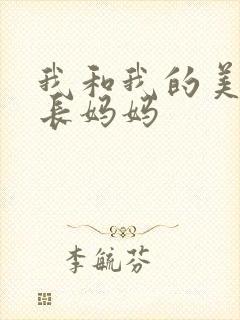 我和我的美
长妈妈
李毓芬